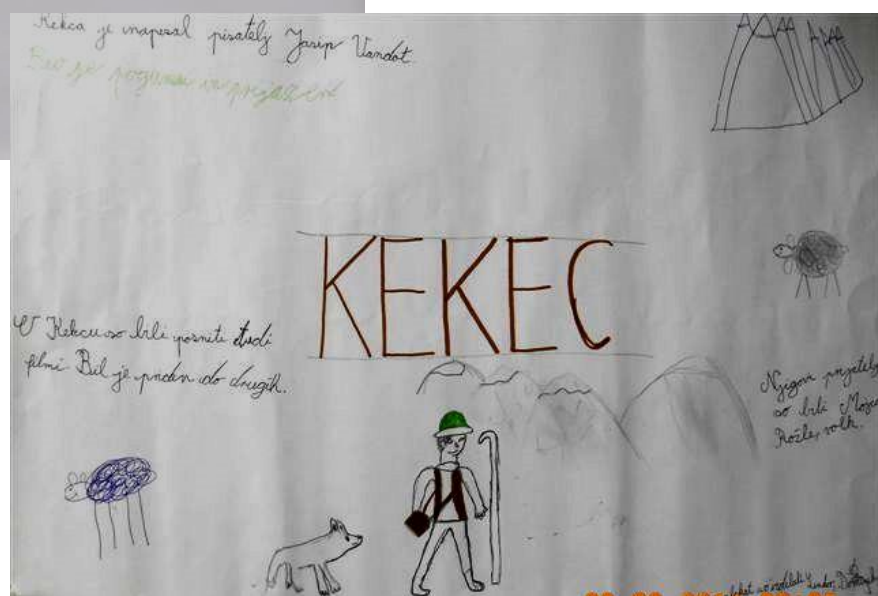 Kekca je napisal pisatelj Josip Vandot.
Bil je pogumen in prijazen
KEKEC
O Kekcu so bili posneti tudi
filmi. Bil je priden do drugih.
Njegovi prijatelji
so bili Mojca
Rožle, volk.